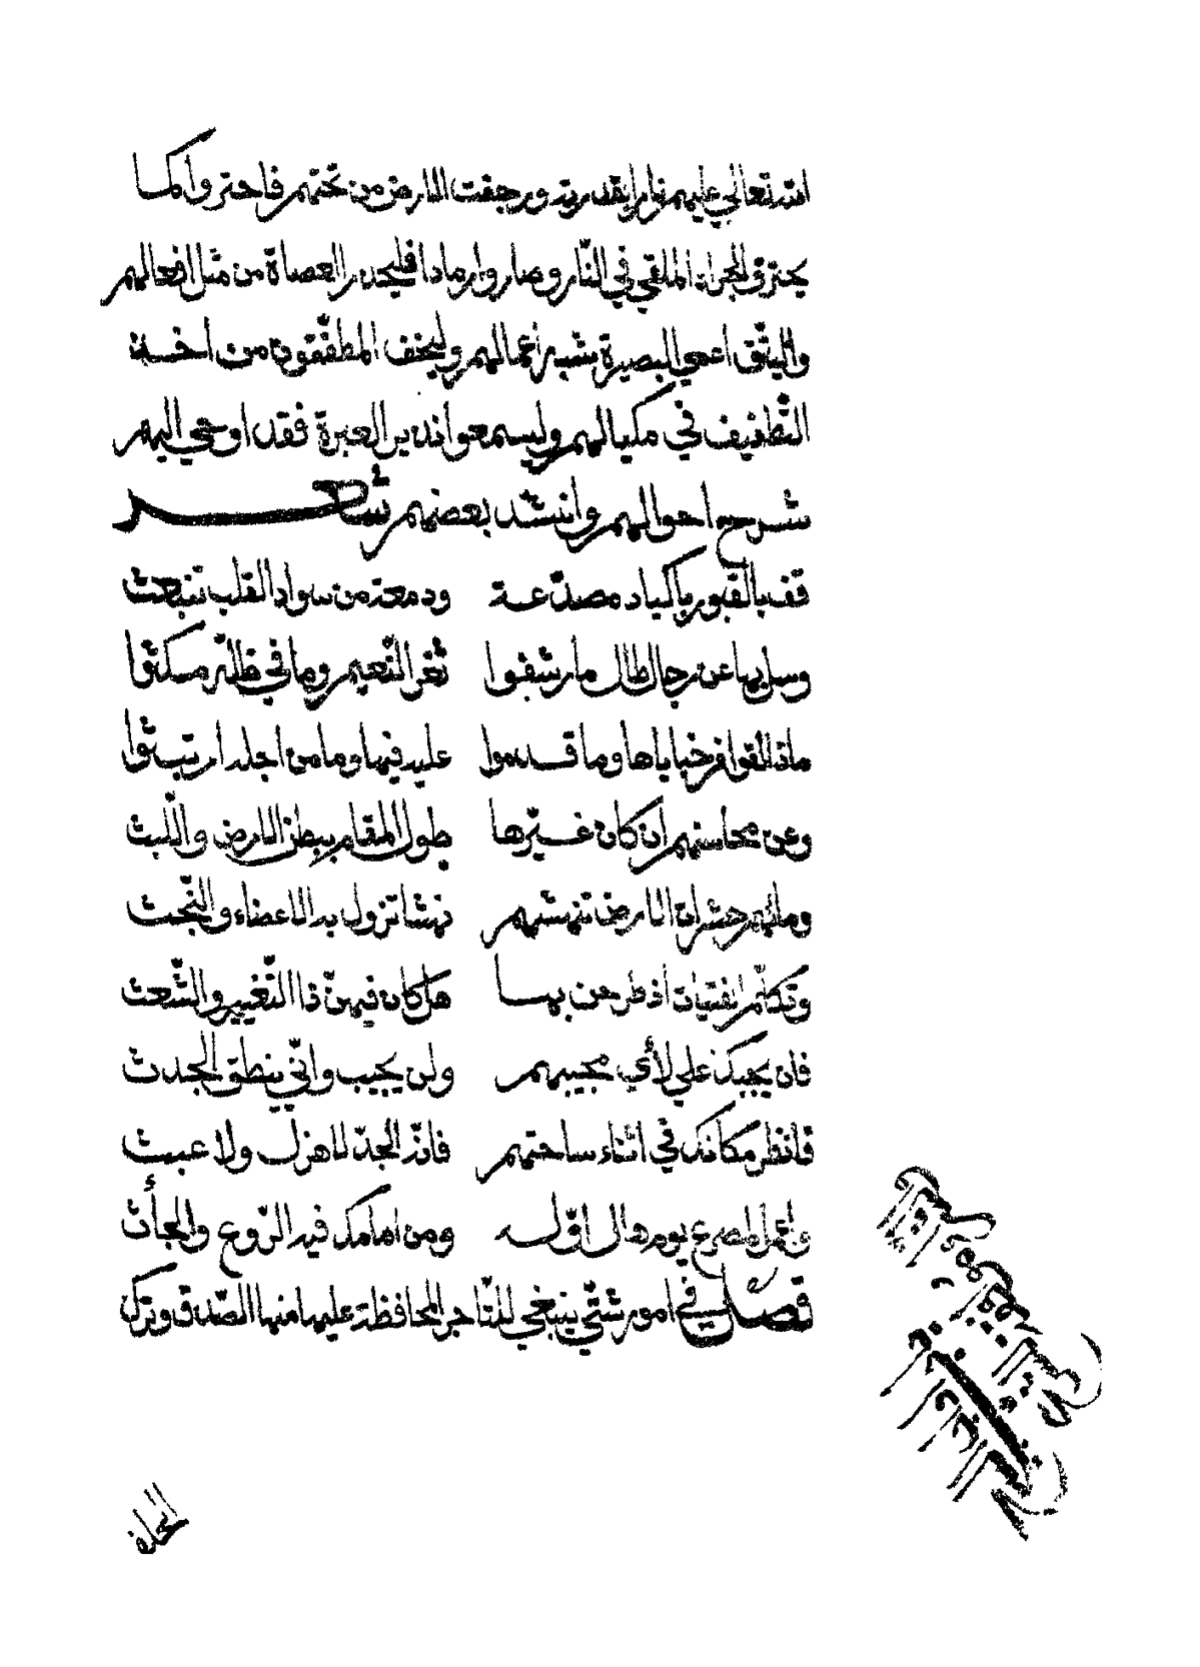 الله تعالي عليهم نارا بقدرته ورجفت الارض من تحتهم فاحترقوا كما
يحترق الجراد الملقي في النّار وصاروا رمادا فليحذر العصاة من مثل افعالهم
واليتّق اعمي البصيرة شبه أعمالهم وليخف المطفّفون من أخذ
التّطفيف في مكيالهم وليسمعوا نذير العبرة فقد اوحي اليهم
شرح احوالهم وانشد بعضهم شعر
قف بالقبور باكباد مصدّعة ودمعة من سواد القلب تنبعث
وسل بها عن رجال طال ما رشفوا ثغر النّعيم وما في ظلّه مكثوا
ماذا لقوا في خباياها وما قدموا عليه فيها وما من اجله ارتبثوا
وعن محاسنهم ان كان غيّرها طول المقام ببطن الارض واللّبث
وما لهم حشرات الارض تنهشهم نهشا تزول به الاعضاء والنّجث
وتكلم الفتيات اذ طرحن بها هل كان فيهنّ ذا التّغيير والشّعث
فان يجبك علي لأي مجيبهم ولن يجيب وانّي ينطق الجدث
فانظر مكانك في اثناء ساحتهم فانّه الجدّ لا هزل ولا عبث
واعمل لمصرع يوم هال اوّله ومن امامك فيه الرّوع والجأث
فصل في امور شتّي ينبغي للتّاجر المحافظة عليها منها الصّدق وترك